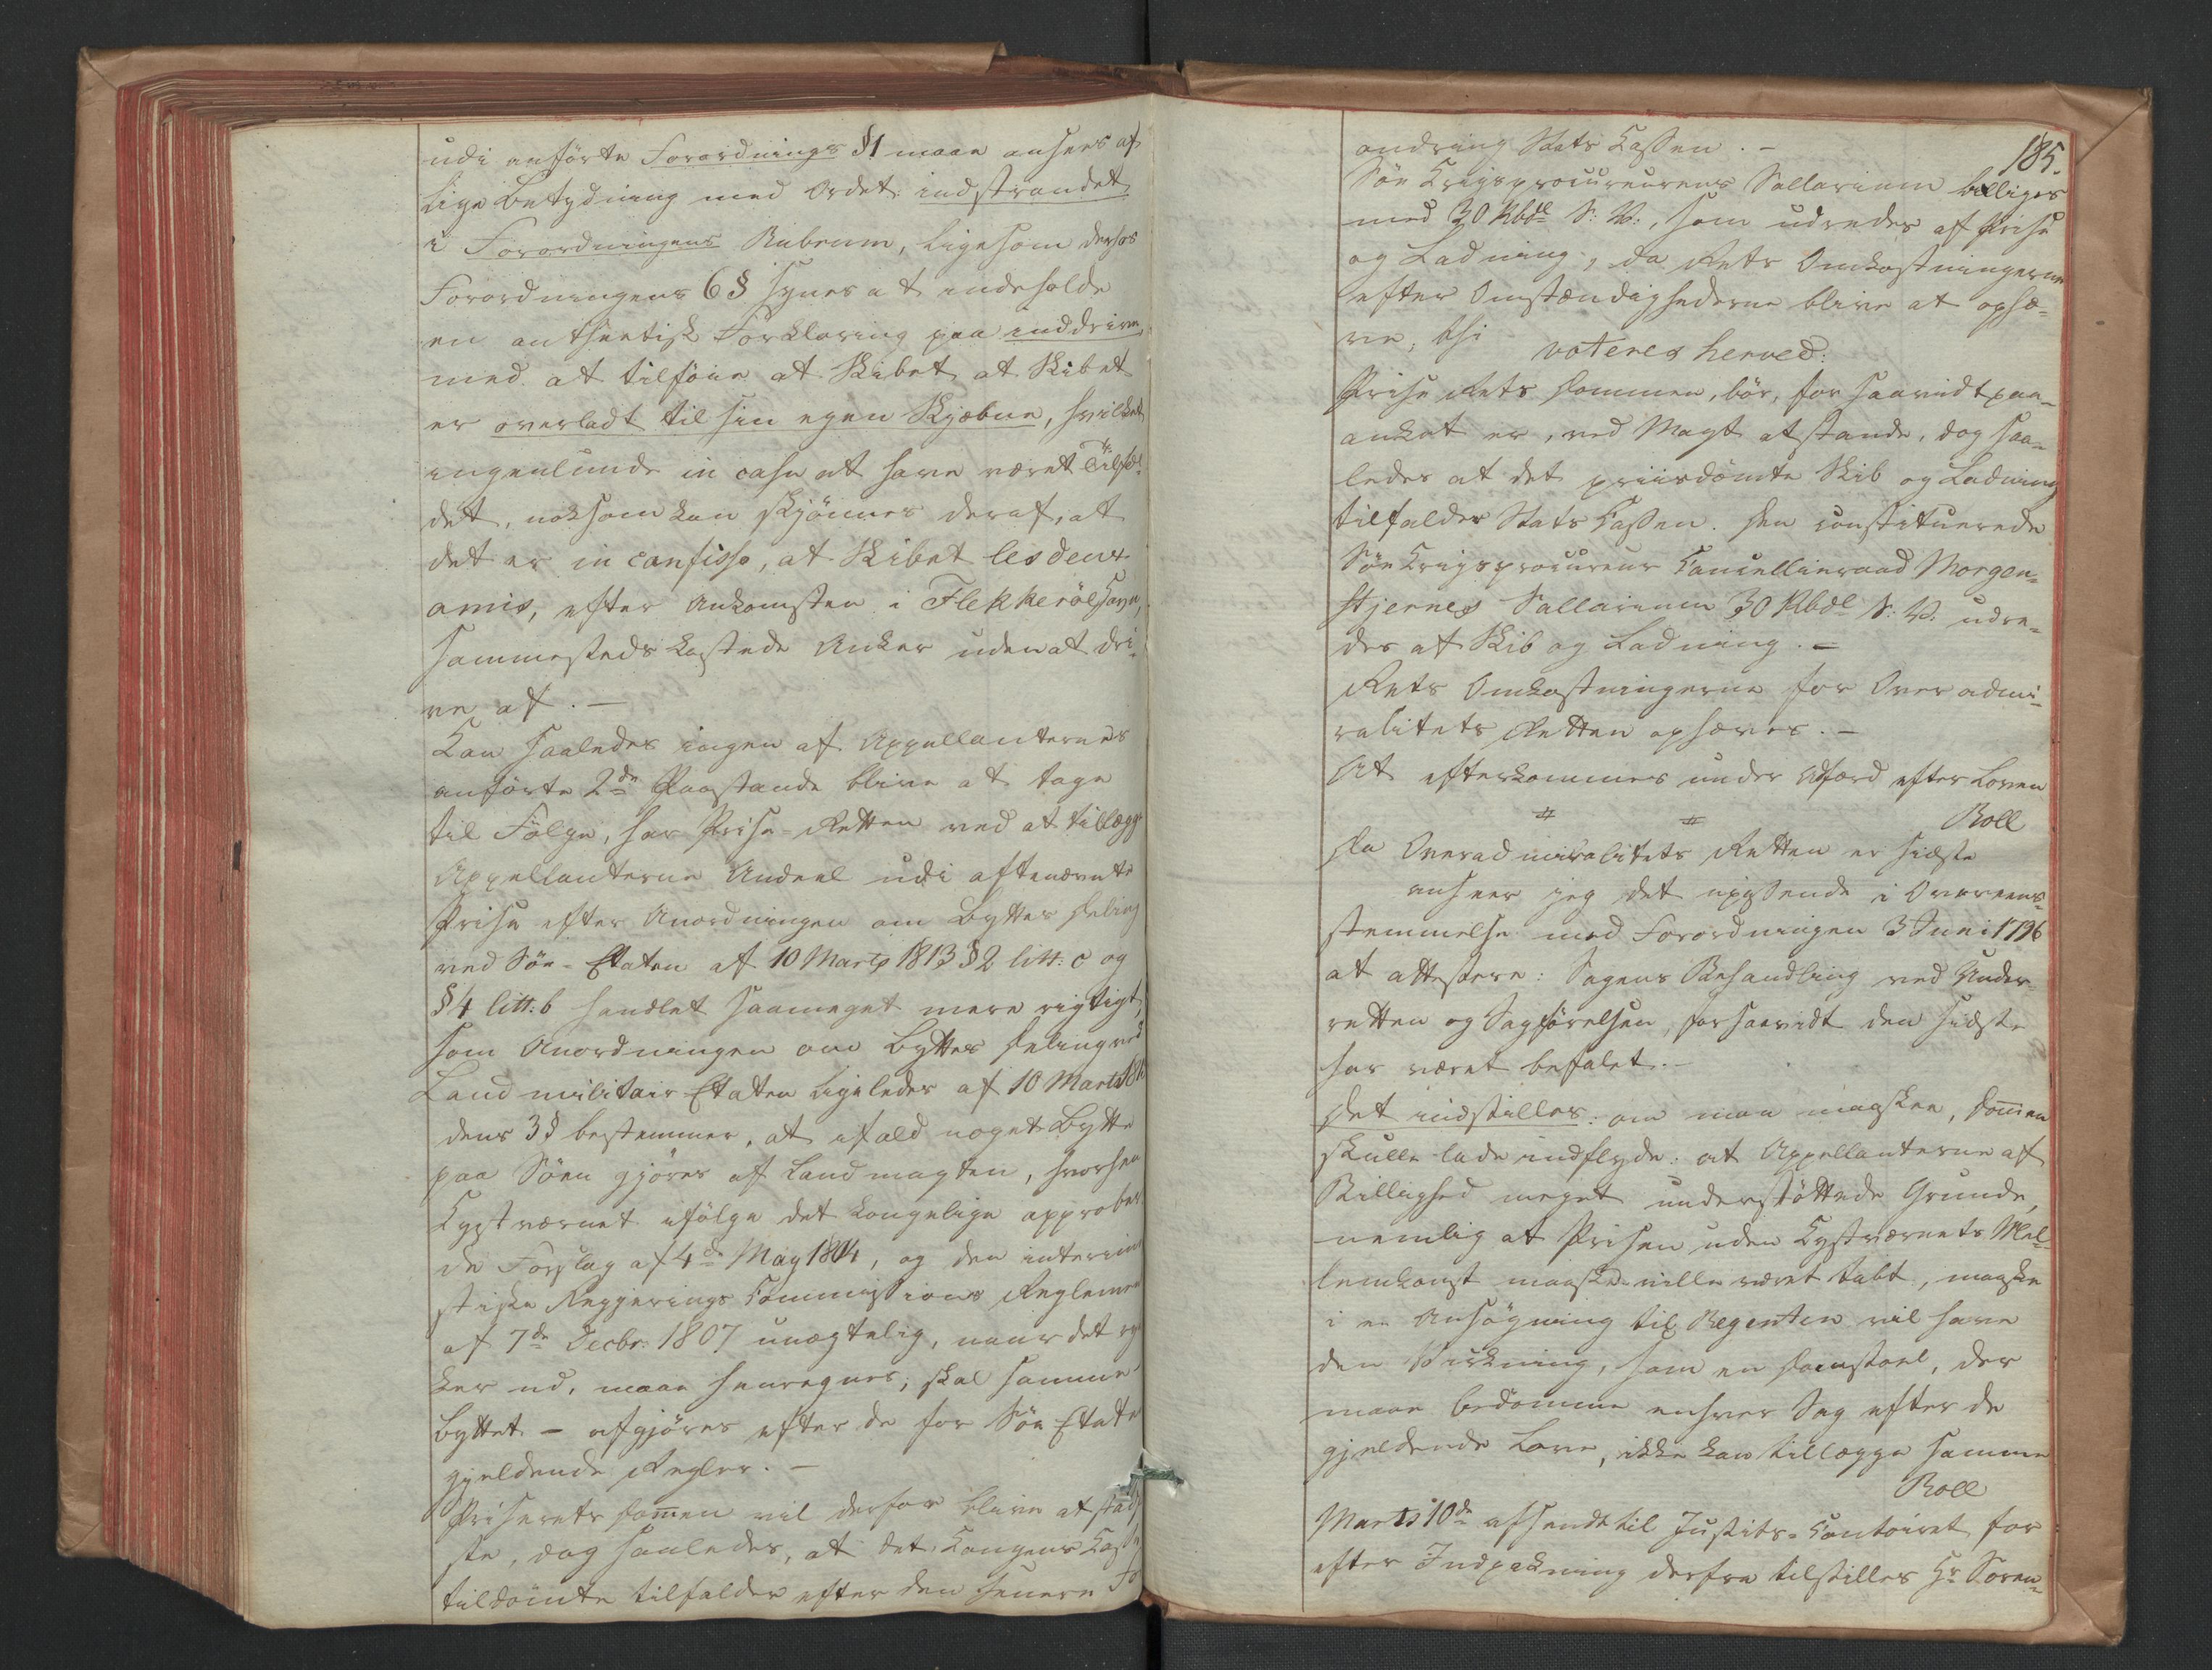 udi anførte Forordnings §1 maae ansees af
lige Betydning med Ordet: indstrandet
i Forordningens Rubrum, ligesom dershos
Forordningens 6 § synes at indeholde
en authentisk Forklaring paa inddriven,
med at tilføie at Skibet at Skibet
er overladt til sin egen Skjæbne, hvilket
ingenlunde in casu at have været Tilfæl¬
det, noksom kan skjönnes deraf, at
det er in confesso, at Skibet les deux
amis, efter Ankomsten i Flekkeröe Havn,
sammesteds kastede Anker uden at dri¬
ve af. —
Kan saaledes ingen af Appellanternes
anførte 2de Paastande blive at tage
til Fölge, har Prise-Retten ved at tillægge
Appellanterne Andeel udi oftenævnte
Prise efter Anordningen om Byttes Deling
ved Söe-Etaten af 10 Marts 1813 § 2 litt: c og
§ 4 litt: b handlet saameget mere rigtigt,
som Anordningen om Byttes Deling ved
Land militair Etaten ligeledes af 10 Marts
dens 3 § bestemmer, at ifald noget Bytte
paa Söen gjöres af Landmagten, hvorhen
Kystværnet ifölge det kongelige approbere
de Forslag af 4de May 1804, og den interim
stiske Regjerings Commissions Reglement
af 7de Decbr: 1807 unægtelig, naar det ryk
ker ud, maae henregnes, skal samme
Byttet — afgjöres efter de for Söe Etaten
gjeldende Regler. —
Priserets Dom̅en vil derfor blive at stadf
ste, dog saaledes, at det Kongens Kasse
tildömte tilfalder efter den senere Fo
185.
andring Stats Kassen. —
Söe Krigsprocureurens Sallarium billiges
med 30 Rbdl S: V:, som udredes af Prise
og Ladning, da Rets Omkostningerne
efter Omstændighederne blive at ophæ¬
ve, thi
voteres herved:
Prise Rets Dommen, bör, for saavidt paa¬
anket er, ved Magt at stande, dog saa¬
ledes at det priisdömte Skib og Ladning
tilfalder Stats Kassen. Den constituerede
Söe Krigsprocureur Cancellieraad Morgen¬
stjernes Sallarium 30 Rbdl S: V. udre¬
des af Skib og Ladning. —
Rets Omkostningerne for Over admi¬
ralitets Retten ophæves. —
At efterkommes under Adfærd efter Loven
# # Roll
Da Overadmiralitets Retten er sidste
anseer jeg det upassende i Overeens¬
stemmelse med Forordningen 3 Juni 1796
at attestere: Sagens Behandling ved Under¬
retten og Sagförelsen, forsaavidt den sidste
har været befalet. —
Det indstilles: om man maaskee, Dom̅en
skulle lade indflyde: at Appellanterne af
Billighed meget understöttede Grunde,
nemlig at Prisen uden Kystværnets Mel¬
lemkomst maaskee ville været tabt, maaskee
i en Ansögning til Regenten vil have
den Virkning, som en Domstoel, der
maae bedömme enhver Sag efter de
gjeldende Love, ikke kan tillægge samme
Roll
Marts 10de afsendt til Justits-Contoiret for
efter Indpakning derfra tilstilles Hr Soren¬